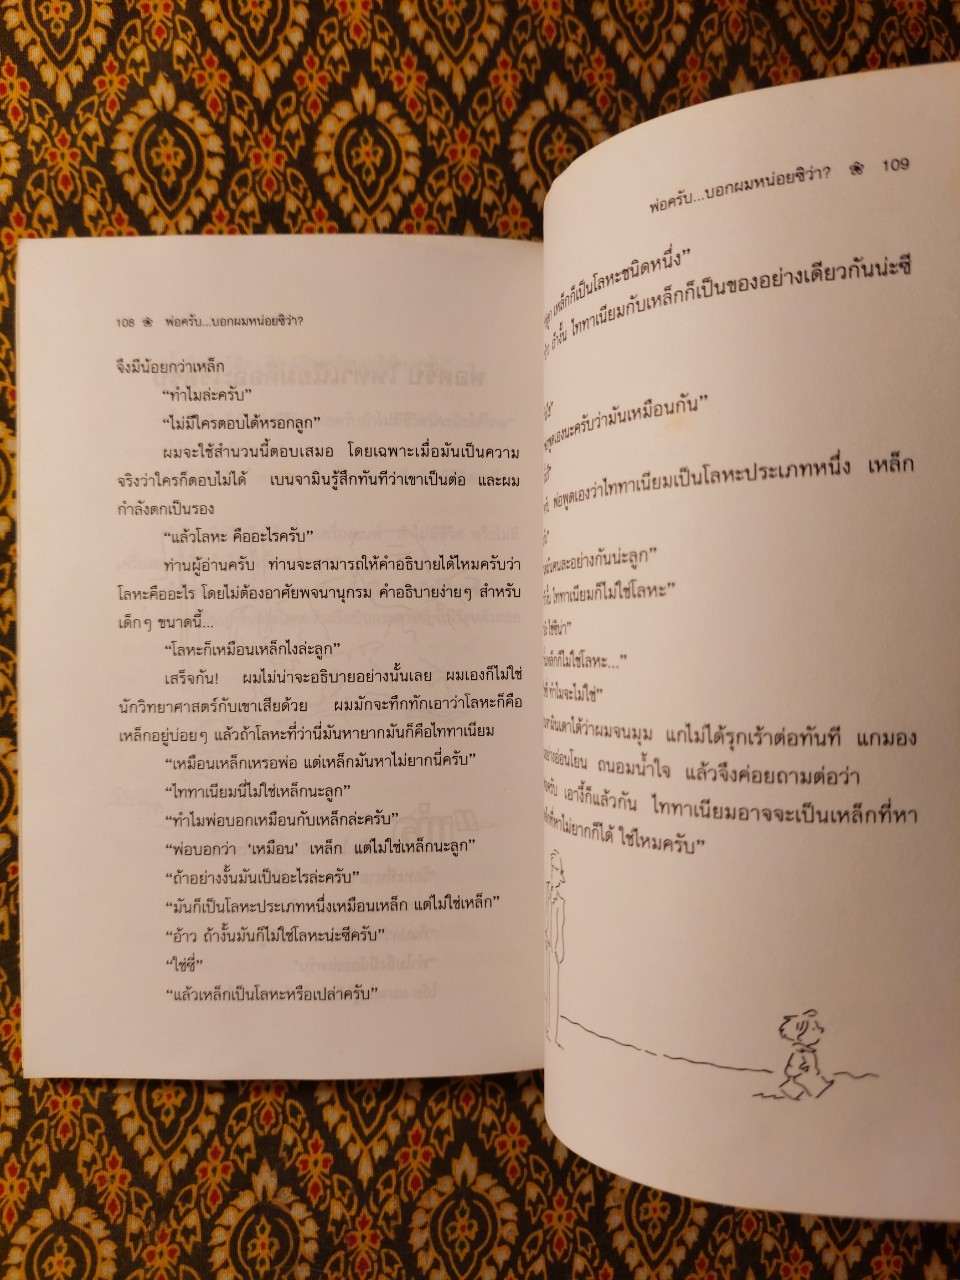 108 ❀ พ่อครับ...บอกผมหน่อยซิว่า?
จึงมีน้อยกว่าเหล็ก
“ทำไมล่ะครับ”
“ไม่มีใครตอบได้หรอกลูก”
ผมจะใช้สำนวนนี้ตอบเสมอ โดยเฉพาะเมื่อมันเป็นความ
จริงว่าใครก็ตอบไม่ได้ เบนจามินรู้สึกทันทีว่าเขาเป็นต่อ และผม
กำลังตกเป็นรอง
“แล้วโลหะ คืออะไรครับ”
ท่านผู้อ่านครับ ท่านจะสามารถให้คำอธิบายได้ไหมครับว่า
โลหะคืออะไร โดยไม่ต้องอาศัยพจนานุกรม คำอธิบายง่ายๆ สำหรับ
เด็กๆ ขนาดนี้...
“โลหะก็เหมือนเหล็กไงล่ะลูก”
เสร็จกัน! ผมไม่น่าจะอธิบายอย่างนั้นเลย ผมเองก็ไม่ใช่
นักวิทยาศาสตร์กับเขาเสียด้วย ผมมักจะทึกทักเอาว่าโลหะก็คือ
เหล็กอยู่บ่อยๆ แล้วถ้าโลหะที่ว่านี่มันหายากมันก็คือไททาเนียม
“เหมือนเหล็กเหรอพ่อ แต่เหล็กมันหาไม่ยากนี่ครับ”
“ไททาเนียมนี่ไม่ใช่เหล็กนะลูก”
“ทำไมพ่อบอกเหมือนกับเหล็กล่ะครับ”
“พ่อบอกว่า ‘เหมือน’ เหล็ก แต่ไม่ใช่เหล็กนะลูก”
“ถ้าอย่างงั้นมันเป็นอะไรล่ะครับ”
“มันก็เป็นโลหะประเภทหนึ่งเหมือนเหล็ก แต่ไม่ใช่เหล็ก”
“อ้าว ถ้างั้นมันก็ไม่ใช่โลหะน่ะซีครับ”
“ใช่ซี่”
“แล้วเหล็กเป็นโลหะหรือเปล่าครับ”
พ่อครับ...บอกผมหน่อยซิว่า? ❀ 109
เหล็กก็เป็นโลหะชนิดหนึ่ง”
ถ้างั้น ไททาเนียมกับเหล็กก็เป็นของอย่างเดียวกันน่ะซี
พูดเองนะครับว่ามันเหมือนกัน”
พ่อพูดเองว่าไททาเนียมเป็นโลหะประเภทหนึ่ง เหล็ก
คนละอย่างกันน่ะลูก”
ไททาเนียมก็ไม่ใช่โลหะ”
ใช่ซิน่า”
เหล็กก็ไม่ใช่โลหะ...”
ทำไมจะไม่ใช่”
เดาได้ว่าผมจนมุม แกไม่ได้รุกเร้าต่อทันที แกมอง
อย่างอ่อนโยน ถนอมน้ำใจ แล้วจึงค่อยถามต่อว่า
เอางี้ก็แล้วกัน ไททาเนียมอาจจะเป็นเหล็กที่หา
ที่หาไม่ยากก็ได้ ใช่ไหมครับ”